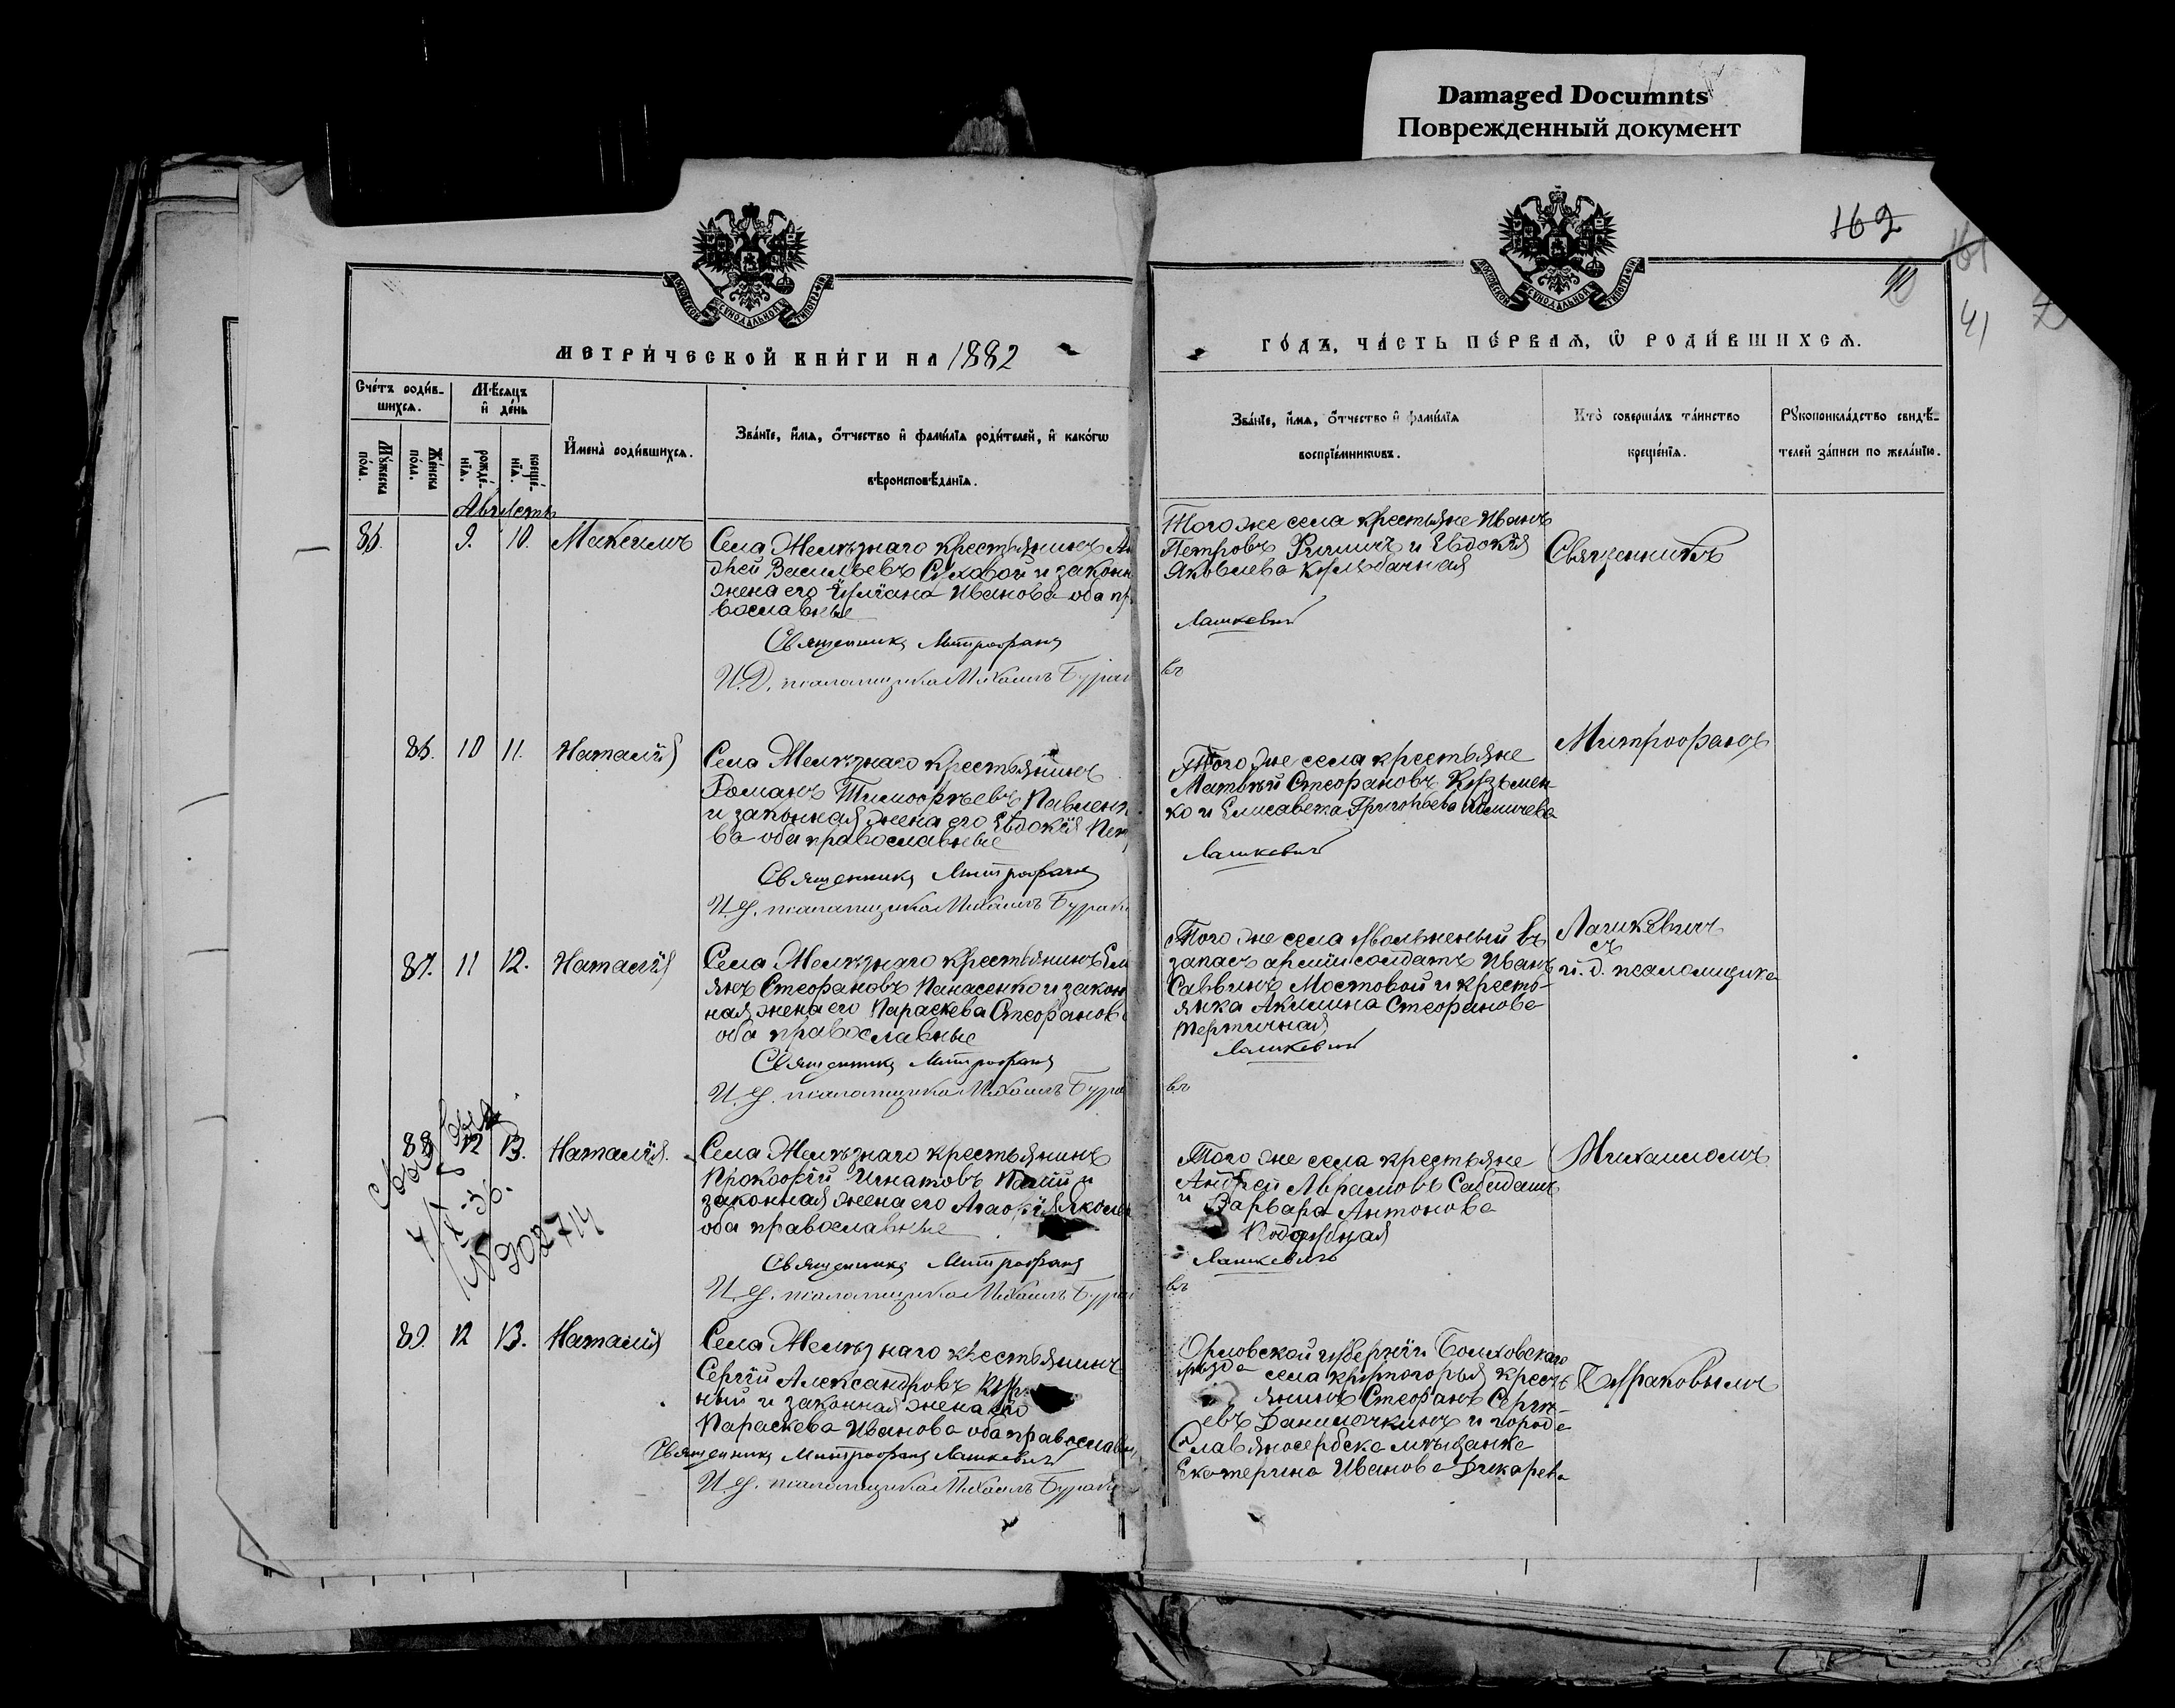 Damaged Documnts
Поврежденный документ
162
161
41
МОСКОВСКОЙ СѴНОДАЛЬНОЙ ТИПОГРАФІИ
МОСКОВСКОЙ СѴНОДАЛЬНОЙ ТИПОГРАФІИ
МЕТРИ́ЧЕСКОЙ КНИ́ГИ НА 1882
ГО́ДЪ, ЧА́СТЬ ПЕ́РВАЯ, Ѽ РОДИ́ВШИХСЯ.
Сче́тъ роди́в-
шихся.
Мѣ́сяцъ
и҆ де́нь
Му́жеска
по́ла.
Же́нска
по́ла.
рожде́-
нїя.
креще́-
нїя.
И҆мена̀ роди́вшихся.
Зва́нїе, и҆́мя, ѻ҆́тчество и҆ фами́лїя роди́телей, и҆ како́гѡ
вѣроисповѣ́данїя.
Зва́нїе, и҆́мя, ѻ҆́тчество и҆ фами́лїя
воспрїе́мниковъ.
Кто̀ соверша́лъ та́инство
креще́нїя.
Рꙋкоприкла́дство свидѣ́-
телей за́писи по жела́нїю.
Августъ
86. 9. 10. Максимъ
Села Желѣзнаго крестьянинъ Ан
дрей Васильевъ Суховой и законн
жена его Іуліана Иванова оба пр
вославные
Священникъ Митрофанъ
И. Д. псаломщика Михаилъ Бурак
Того же села крестьяне Иванъ
Петровъ и Евдокія
Яковлева
Лашкевич
въ
Священникъ
86. 10 11. Наталія
Села Желѣзнаго крестьянинъ
Романъ Тимофѣевъ Павленк
и законная жена его Евдокія Пет
ва оба православные
Священникъ Митрофанъ
И. д. псаломщика Михаилъ Бураков
Того же села крестьяне
Матвѣй Стефановъ Кузьмен-
ко и Елисавета Григорьева
Лашкевич
Митрофанъ
87. 11 12. Наталія
Села Желѣзнаго крестьянинъ Ем
янъ Стефановъ Панасенко и закон
ная жена его Параскева Стефанов
оба православные
Священникъ Митрофанъ
И. д. псаломщика Михаилъ Бурак
Того же села уволенный въ
запасъ арміи солдатъ Иванъ
Саввинъ Мостовой и кресть-
янка Акилина Стефанова
Пертичная
Лашкевич
въ
Лашкевичъ
съ
и. д. псаломщика
88. 12 13. Наталія.
Села Желѣзнаго крестьянинъ
Прокофій Игнатовъ Палій и
законная жена его Агафія Яковл
оба православные
Священникъ Митрофанъ
И. д. псаломщика Михаилъ Бурак
Того же села крестьяне
Андрей Аврамовъ Сабадашъ
и Варвара Антонова
Лашкевичъ
въ
Михаиломъ
№ 902714
89. 12 13. Наталія
Села Желѣзнаго крестьянинъ
Сергій Александровъ
ный и законная жена его
Параскева Иванова оба православн
Священникъ Митрофанъ Лашкевич
И. д. псаломщика Михаилъ Бураков
Орловской губерніи Болховскаго
уѣзда села Кривогорья крест
янинъ Стефанъ Серге-
евъ Данилочкинъ и города
Славяносербска мѣщанка
Екатерина Иванова Дикарева
Бураковымъ